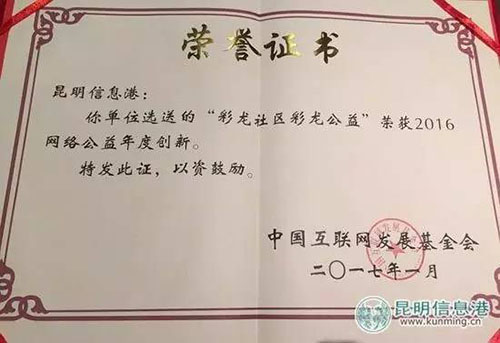 荣誉证书
昆明信息港：
你单位选送的“彩龙社区彩龙公益”荣获2016
网络公益年度创新。
特发此证，以资鼓励。
中国互联网发展基金会
二〇一七年一月
昆明信息港
www.kunming.cn